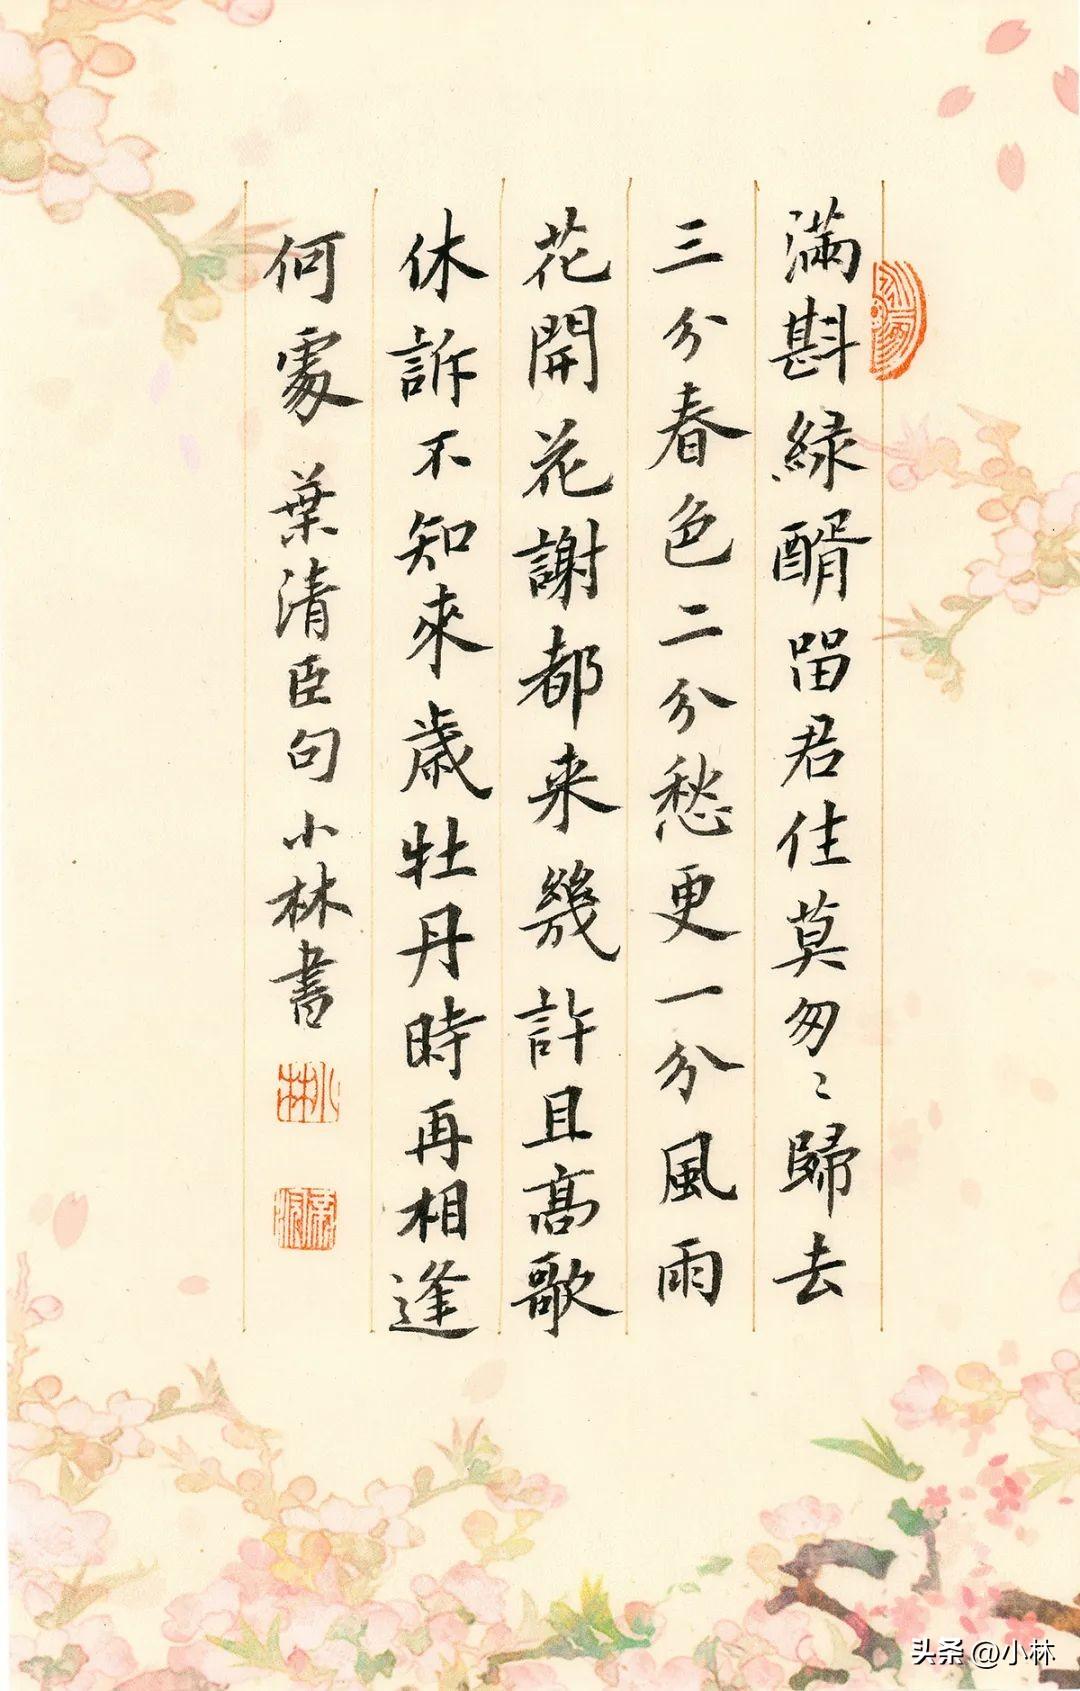 滿斟緑醑畱君住莫匆〻歸去
三分春色二分愁更一分風雨
花開花謝都来幾許且高歌
休訴不知來歳牡丹時再相逢
何處 葉清臣句小林書
小林
头条 @小林